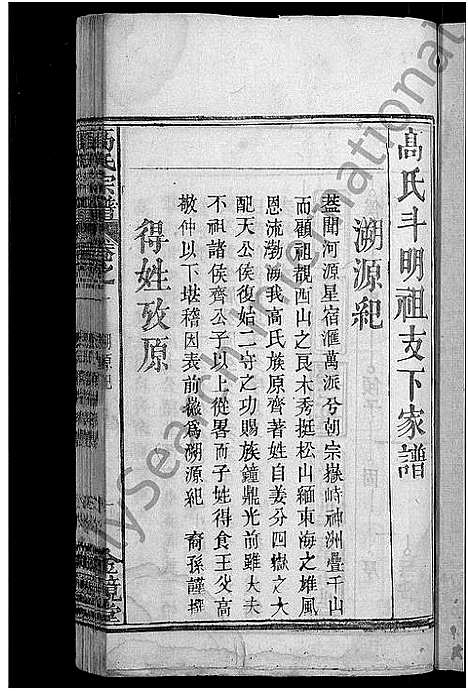 高氏斗明祖支下家譜
溯源紀
葢聞河源星宿滙萬派兮朝宗嶽峙神洲疊千山
而顧祖觀西山之艮木秀挺松山緬東海之雄風
恩流渤海我高氏族原齊著姓自姜分四嶽之大
配天公侯復始二守之功賜族鐘鼎光前雖大夫
不祖諸侯齊公子以上從畧而子姓得食王父高
敬仲以下堪稽因表前徽爲溯源紀 裔孫謹撰
得姓攷原
高氏宗譜
卷之一
溯源紀
一
金鏡堂
MySearch International